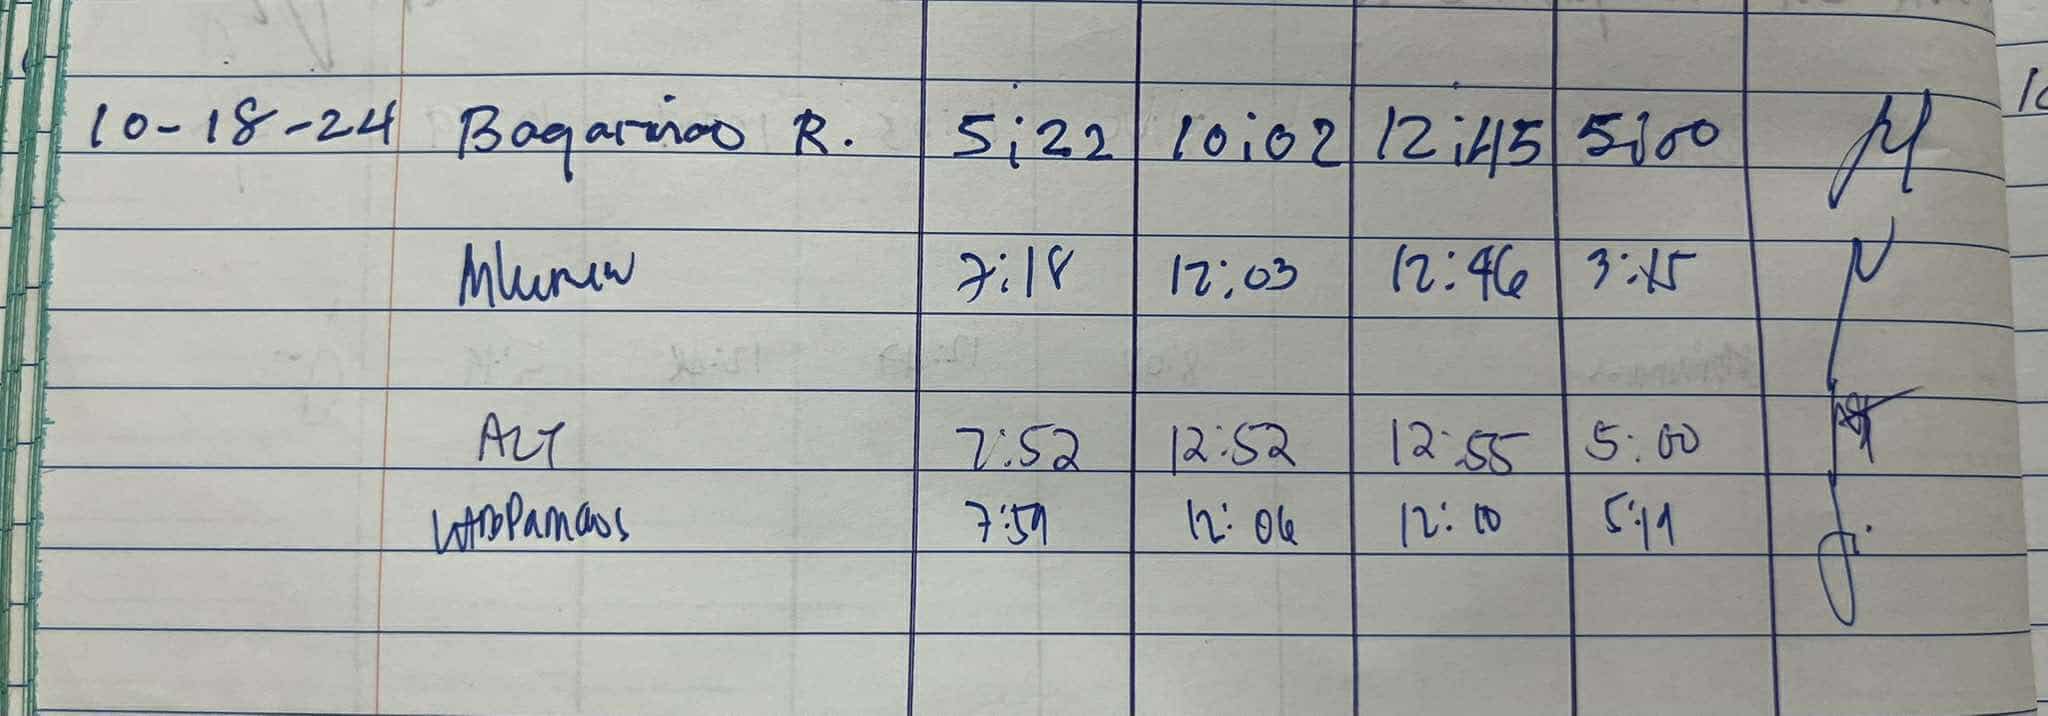 10-18-24 Bagarinao R. 5:22 10:02 12:45 5:00
7:18 12:03 12:46 3:15
ALT 7:52 12:52 12:55 5:00
7:59 12:06 12:10 5:19